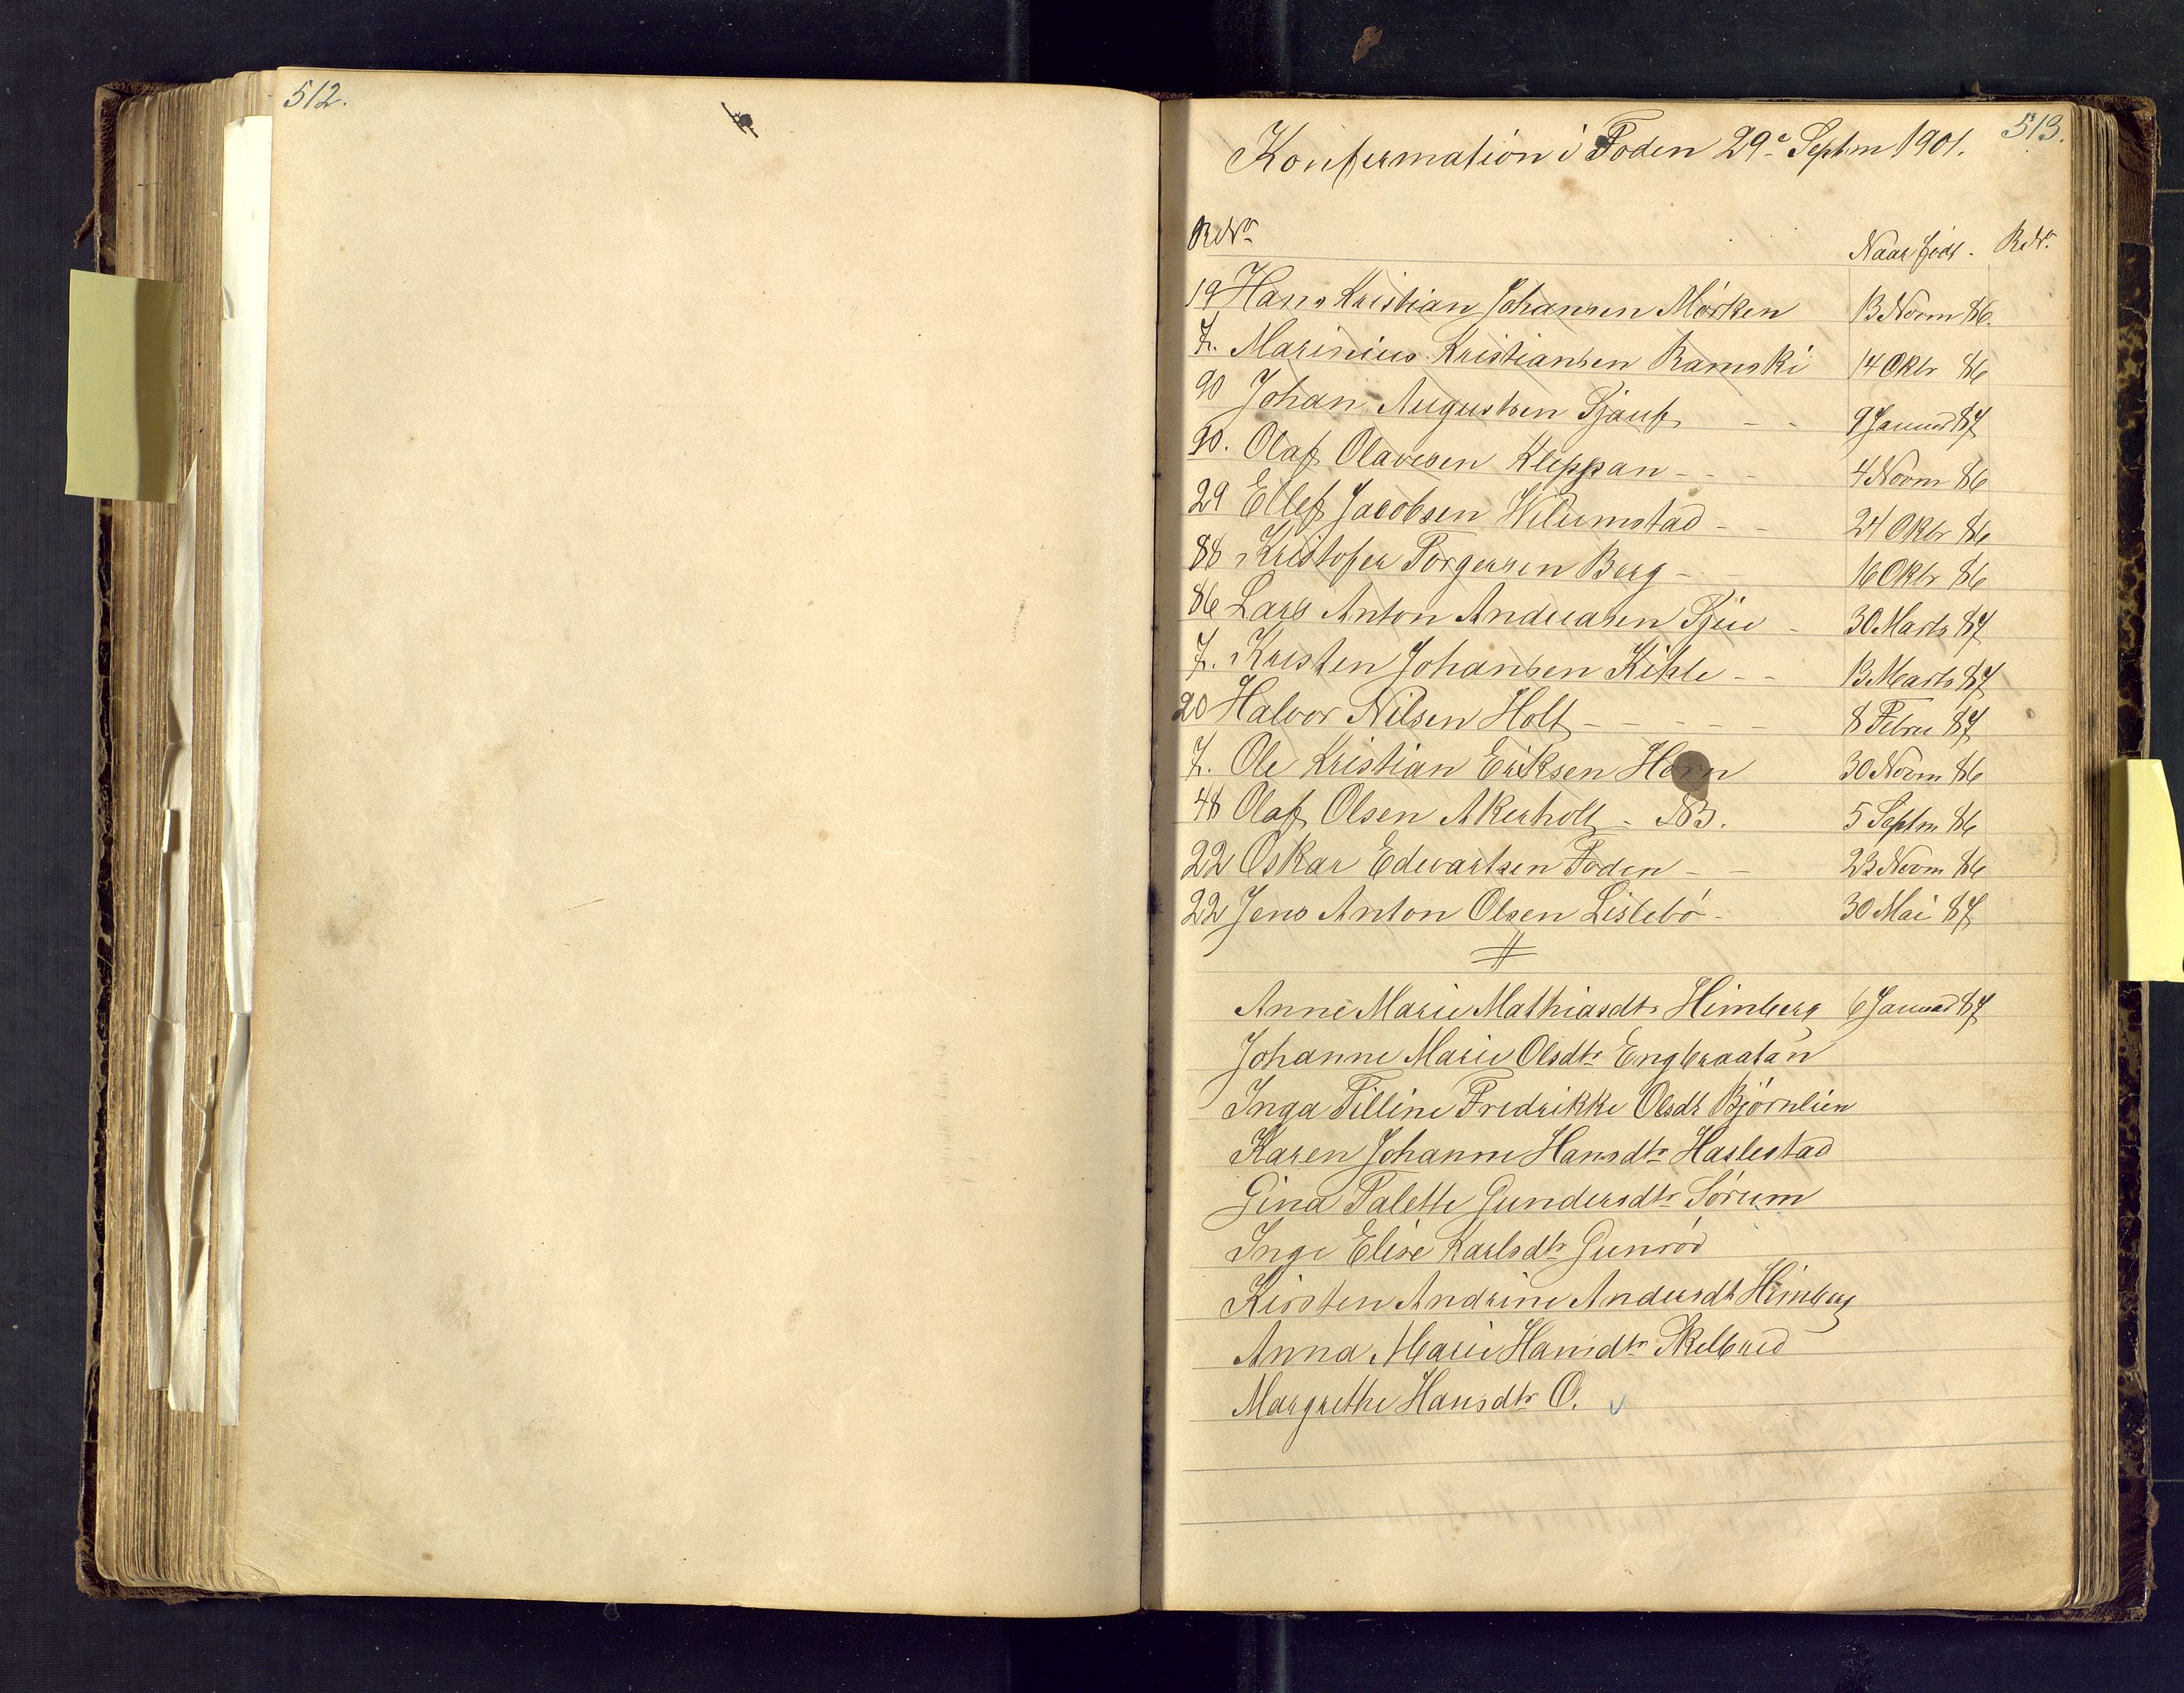 512.
513.
Konfirmation i Foden 29e Septm 1901.
R. No Naar født. R. No.
19 Hans Kristian Johansen Mørken 13 Novm 86.
7. Marinius Kristiansen Ramski 14 Oktr 86
90 Johan Augustsen Sjauf - - 9 Januar 87
90. Olaf Olavesen Kleppan - - - 4 Novm 86
29 Ellef Jacobsen Wilumstad - - 24 Oktr 86
88 Kristofer Torgersen Berg - - 16 Oktr 86
86 Lars Anton Andreasen - 30 Marts 87
7. Kristen Johansen Kihle - - 13 Marts 87
20 Halvor Nilsen Holt - - - - - 8 Febru 87
7. Ole Kristian Eriksen Horn 30 Novm 86
48 Olaf Olsen Akerholt - NB. 5 Septm 86
22 Oskar Edevartsen Foden - - 23 Novm 86
22 Jens Anton Olsen Lislebö - 30 Mai 87
Anne Marie Mathiasdtr Himberg 6 Januar 87
Johanne Marie Olsdtr Engbraatan
Inga Tilline Fredrikke Olsdt Bjørnlien
Karen Johanne Hansdtr Haslestad
Gina Palette Gundersdtr Sörum
Inge Elise Karlsdtr Gunröd
Kirsten Andrine Andersdt Himberg
Anna Marie Hansdtr Skelbred
Margrethe Hansdtr O.